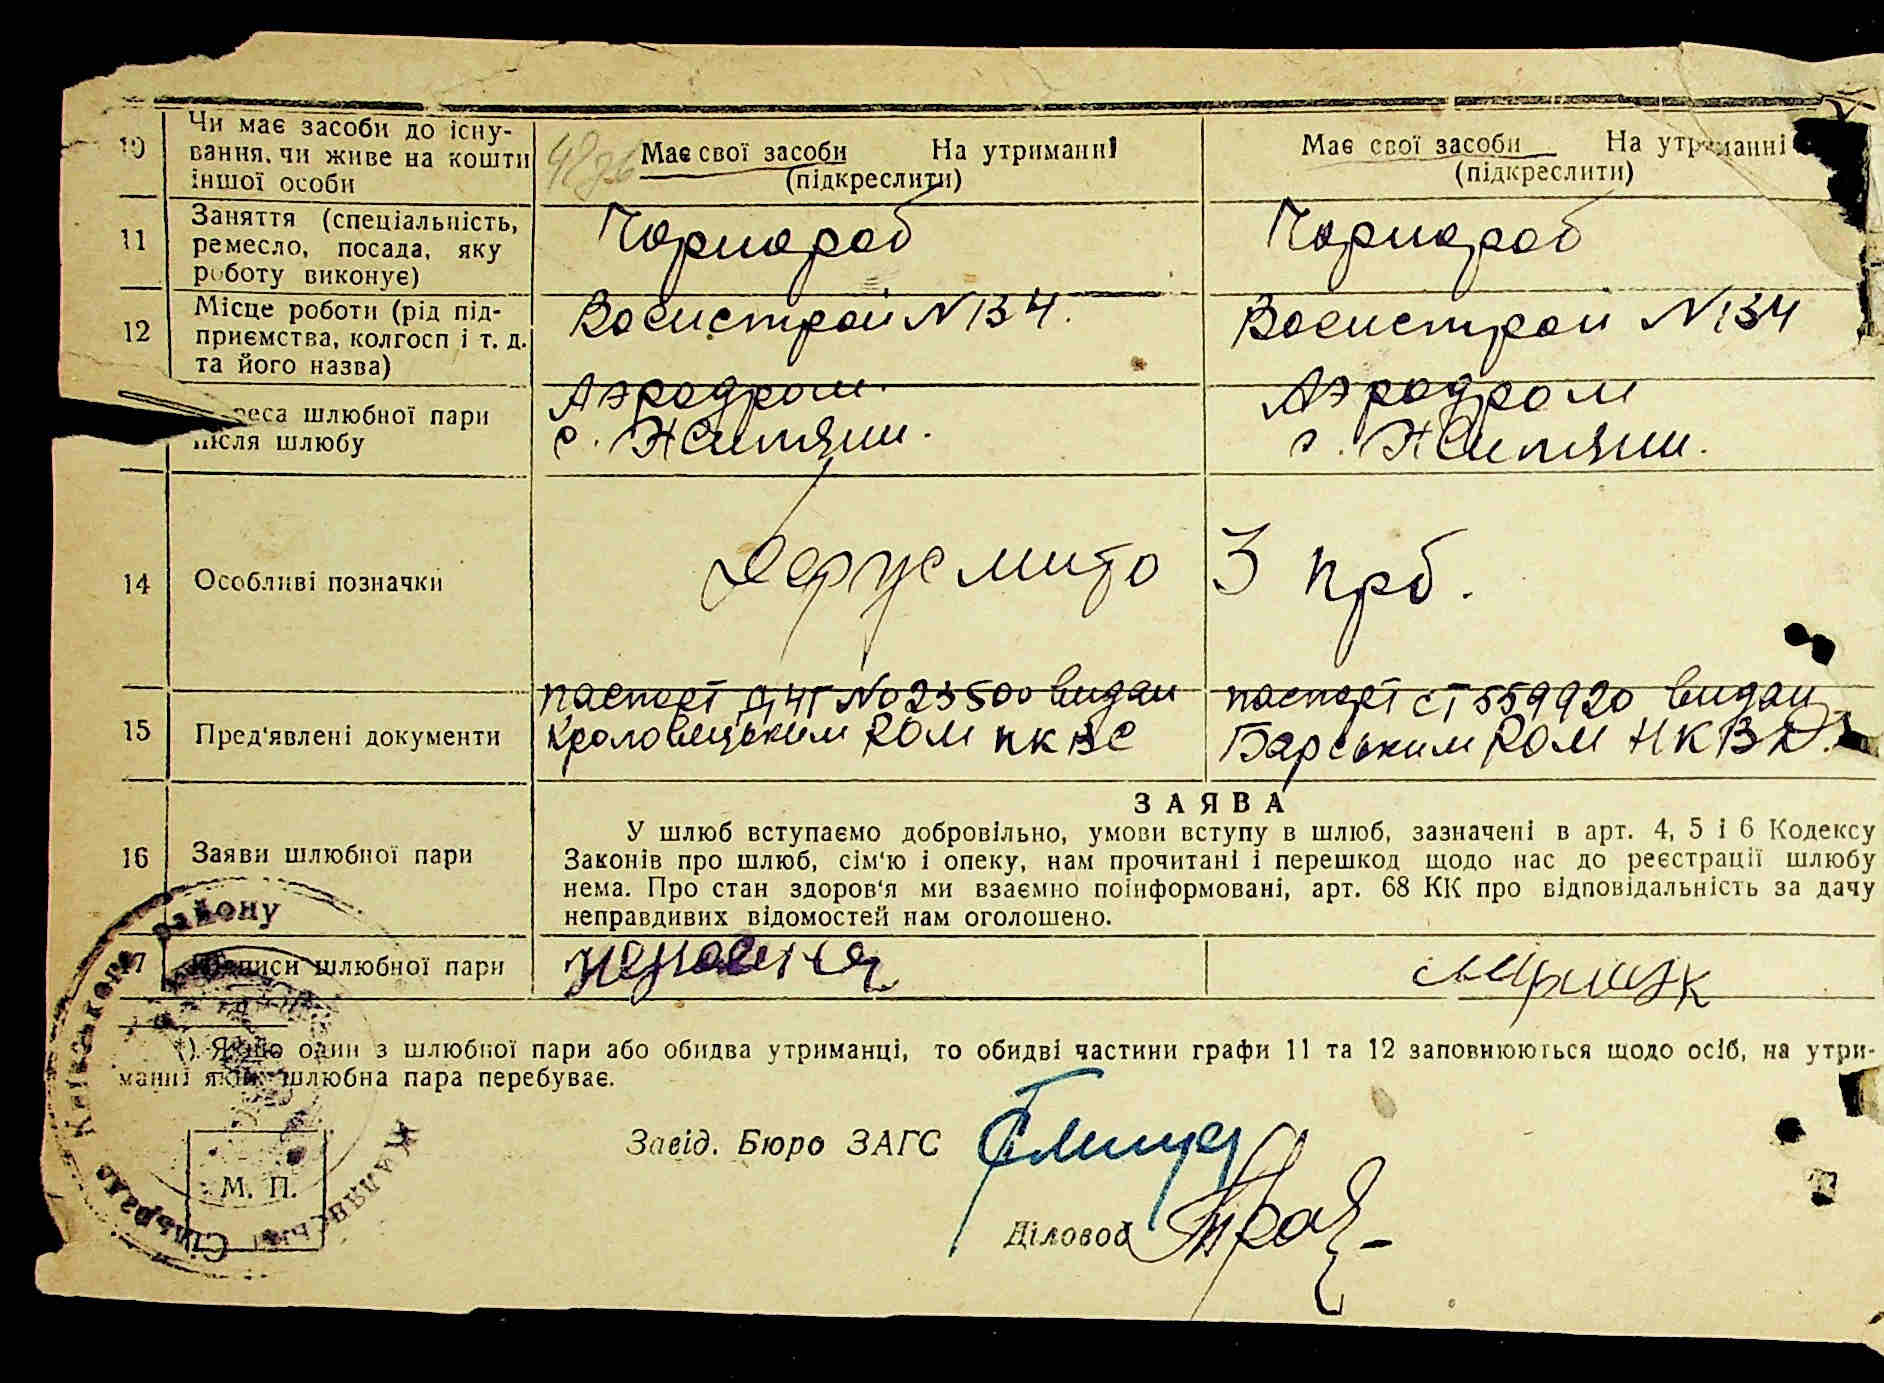 10 Чи має засоби до існу-
вання, чи живе на кошти
іншої особи
Має свої засоби На утриманні
(підкреслити)
Має свої засоби На утриманні
(підкреслити)
11 Заняття (спеціальність,
ремесло, посада, яку
роботу виконує)
Чорнороб
Чорнороб
12 Місце роботи (рід під-
приємства, колгосп і т. д.
та його назва)
Воєнстрой N 134.
Воєнстрой N 134
реса шлюбної пари
після шлюбу
Аэродром.
с. Жиляни.
Аэродром
с. Жиляни.
14 Особливі позначки
мито 3 крб.
15 Пред'явлені документи
паспорт No 23500 видан
Кроловецьким РОМ НКВС
паспорт СТ 559920 видан
Барським РОМ НКВД.
16 Заяви шлюбної пари
ЗАЯВА
У шлюб вступаємо добровільно, умови вступу в шлюб, зазначені в арт. 4, 5 і 6 Кодексу
Законів про шлюб, сім'ю і опеку, нам прочитані і перешкод щодо нас до реєстрації шлюбу
нема. Про стан здоров'я ми взаємно поінформовані, арт. 68 КК про відповідальність за дачу
неправдивих відомостей нам оголошено.
17 Підписи шлюбної пари
) Якщо один з шлюбної пари або обидва утриманці, то обидві частини графи 11 та 12 заповнюються щодо осіб, на утри-
манні яких шлюбна пара перебуває.
Завід. Бюро ЗАГС
Діловод
М. П.
Жилянська Сільрада Київського району